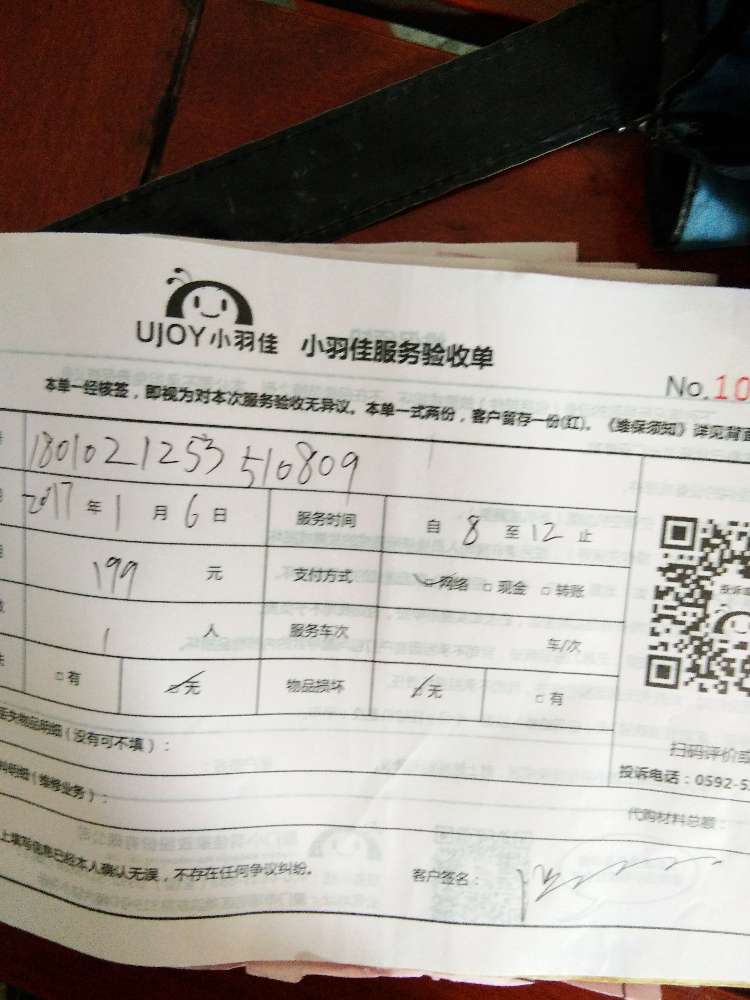 UJOY小羽佳 小羽佳服务验收单
No.10
本单一经核签，即视为对本次服务验收无异议。本单一式两份，客户留存一份(红)。《维保须知》详见背
180102125351 0809
2017年1月6日 服务时间 自8至12止
199元 支付方式 网络 现金 转账
1人 服务车次 车/次
有 无 物品损坏 无 有
失物品明细（没有可不填）：
明细（维修业务）：
扫码评价或
投诉电话：0592-5
代购材料总额：
上填写信息已经本人确认无误，不存在任何争议纠纷。 客户签名：